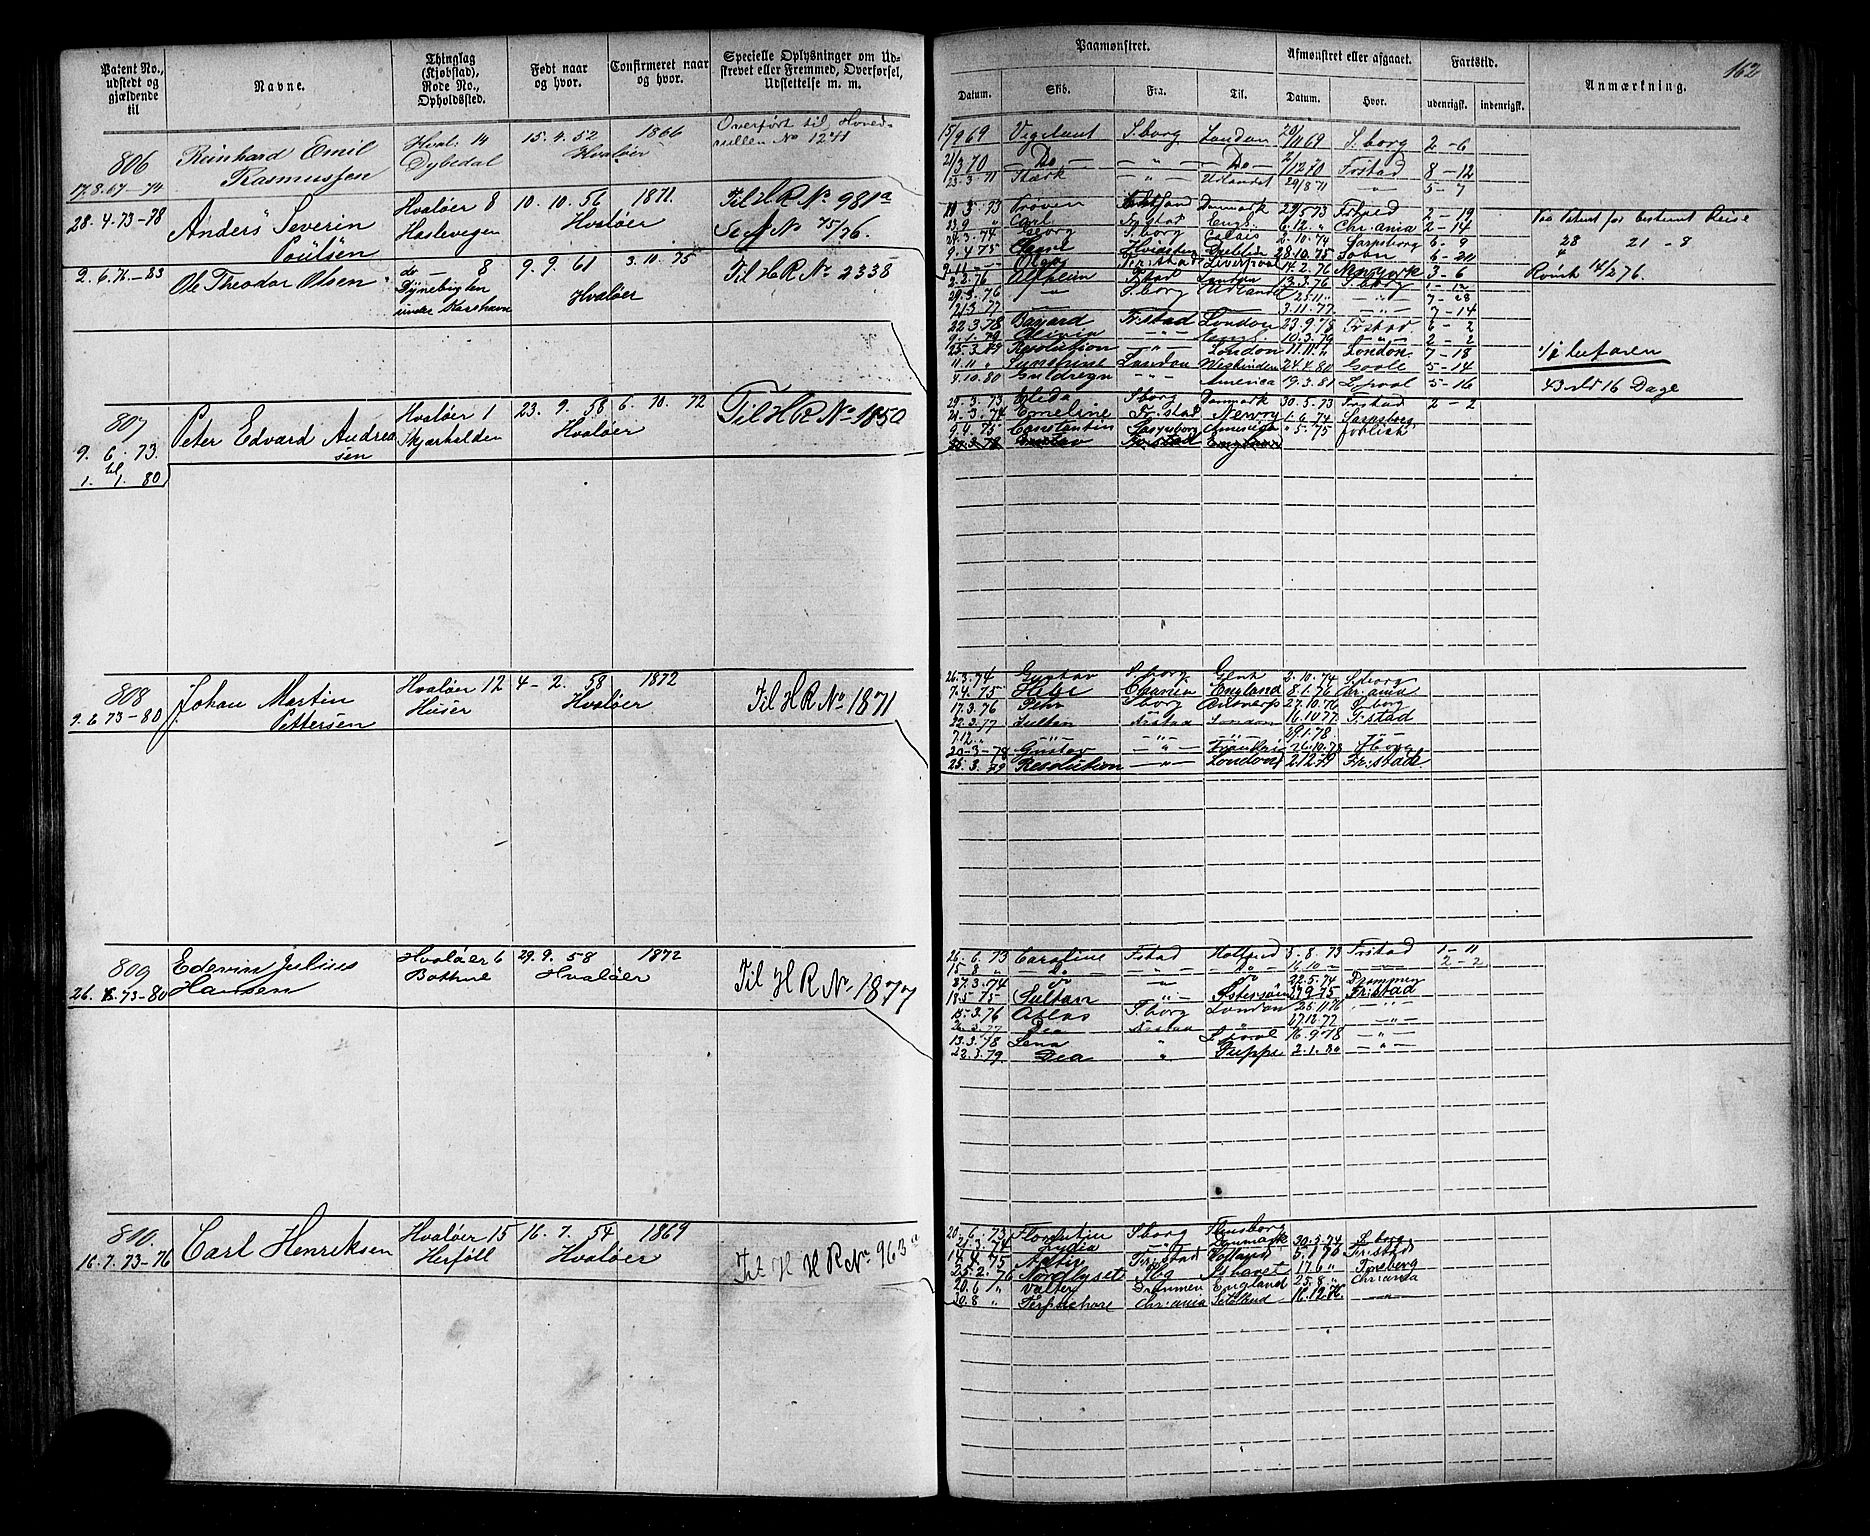 162
Patent No., udstedt og gjældende til
Navne.
Thinglag (Kjøbstad), Rode No., Opholdssted.
Født naar og hvor.
Confirmeret naar og hvor.
Specielle Oplysninger om Udstrevet eller Fremmed, Overførsel, Udslettelse m. m.
Paamønstret.
Afmønstret eller afgaaet.
Fartstid.
Anmærkning.
Datum.
Skib.
Fra.
Til.
Datum.
Hvor.
udenrigsk.
indenrigsk.
806
17.8.67-74
Reinhard Emil
Rasmussen
Hval. 14
Dybedal
15. 4. 52
1866
Hvaløer
Overført til Hoved-
rullen No 1241
15/9 69 Vigilant S.borg London 20/11 69 S.borg 2-6
21/3 70 - Do - - " - - Do - 2/12 70 Frstad 8-12
23-3 71 Stærk - " - Udlandet 29/8 71 " 5-7
28.4.73-78
Anders Severin
Poulsen
Hvaløer 8
Haslevegen
10. 10. 56
1871.
Hvaløer
Til H R No 981a
No 75/76.
Danmark 29/5 73 Fr.stad 2-19
Carl Fr.stad Engl. 6.12. " Chr.ania 2-14
Georg Calais 2.10.74 Sarpsborg 6-9
9.4 75 28.10.75 6-20
Liverpool 14.2.76 Newyork 3-6
Paa Patent for bestemt Reise
28 21-8
4
Rømt 14/2 76.
2.6.76.-83
Ole Theodor Olsen
do - 8
under Kasehavn
9. 9. 61
3. 10. 75
Hvaløer
Til H R No 2338
2.2.76 Alfheim F.stad London 13.3.76 S.borg 1-12
29.3.76 - " - S.borg Udlandet 25.11. - " - 7-28
3.11.77 - " - 7-14
22.3.78 Bayard Fr.stad London 23.9.78 Fr.stad 6-2
9.1.79 Olivia - " - Engl. 10.3.79 - " - 2-2
25.3.79 Resolution - " - London 11.11. " London 7-18
11.11 " Sunshine London Westindien 24.4.80 Goole 5-14
4.10.80 Guldregn - " - America 19.3.81 L.pool 5-16
43 Mt 16 Dage
807
9. 6. 73.
til
1. 1. 80
Peter Edvard Andrea
sen
Hvaløer 1
Skjærhalden
23. 9. 58
6. 10. 72
Hvaløer
Til H R No 1850
29.3.73 Alida S.borg Danmark 30.5.73 Fr.stad 2-2
21.3.74 Emeline Fr.stad Newry 1.6.74 Sarpsborg
9.4.75 Constantin Sarpsborg America " 5.75
20.3.78 Gustav Fr.stad England
808
9.6.73-80
Johan Martin
Pettersen
Hvaløer 12
Huser
4-2. 58
1872
Hvaløer
Til H R No 1871
26.3.74 Gustav S.borg Ghent 2.10.74 S.borg
7.4.75 Hebe Chr.ania England 8.1.76 Chr.ania
17.3.76 S.borg Antverp 27.10.76 S.borg
22.3.77 Sultan Fr.stad London 16.10.77 Fr.stad
7.12. " - " - - " - - " - 29.1.78 - " -
20-3-78 Gustav - " - 26.10.78 S.borg
25.3.79 Resolution - " - London 21279 Fr.stad
809
26.6.73-80
Edevin Julius
Hansen
Hvaløer 6
Bothne
29. 9. 58
1872
Hvaløer
Til H R No 1877
26.6.73 Caroline F.stad Holland 5.8.73 Fr.stad 1-11
15.8 " Do - " - Do 16.10 - - " - 2-2
27.3.74 do - " - do 22.5.74 Drammen
18.5.75 Sultan - " - Østersøen 27.9.75 Fr.stad
15.3.76 Atlas S.borg London 25.11.76 - " -
26.3.77 Dea Fr.stad " 27.12.77 - " -
13.3.78 Lena L.pool 16.9.78 - " -
22.3.79 Dea " Dieppe 2.1.80 - " -
810.
16.7.73-76
Carl Henriksen
Hvaløer 15
Herføll
16. 7. 54
1869
Hvaløer
Til H H R No 963a
20.6.73 Florentin S.borg Flensborg
74 Lydia - " - Danmark 30.3.74 S.borg
14.4.75 Activ Fr.stad Holland 5.1.76 Fr.stad
25.2.76 Nordlyset Tbg Ishavet 17.6 " Tønsberg
20.6 " Valter Drammen England 25.8 " Chr.ania
30.8 " Terpsichore Chr.ania 16.12.76. - " -